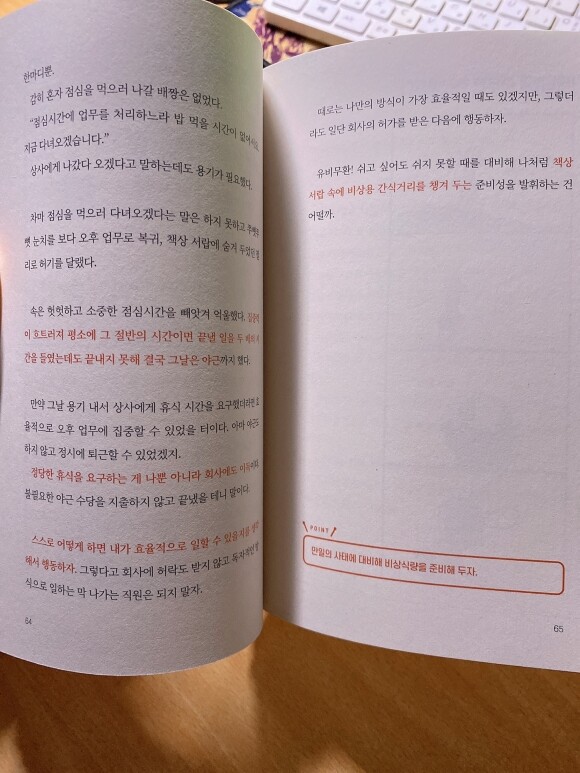 한마디뿐.
감히 혼자 점심을 먹으러 나갈 배짱은 없었다.
“점심시간에 업무를 처리하느라 밥 먹을 시간이 없어서요,
지금 다녀오겠습니다.”
상사에게 나갔다 오겠다고 말하는데도 용기가 필요했다.
차마 점심을 먹으러 다녀오겠다는 말은 하지 못하고
눈치를 보다 오후 업무로 복귀, 책상 서랍에 숨겨 두었던
로 허기를 달랬다.
속은 헛헛하고 소중한 점심시간을 빼앗겨 억울했다.
이 흐트러지 평소에 그 절반의 시간이면 끝낼 일을 두 배의
간을 들였는데도 끝내지 못해 결국 그날은 야근까지 했다.
만약 그날 용기 내서 상사에게 휴식 시간을 요구했더라면
율적으로 오후 업무에 집중할 수 있었을 터이다. 아마 야근도
하지 않고 정시에 퇴근할 수 있었겠지.
정당한 휴식을 요구하는 게 나뿐 아니라 회사에도 이득이다.
불필요한 야근 수당을 지출하지 않고 끝냈을 테니 말이다.
스스로 어떻게 하면 내가 효율적으로 일할 수 있을지를
해서 행동하자. 그렇다고 회사에 허락도 받지 않고 독자적인
식으로 일하는 막 나가는 직원은 되지 말자.
64
때로는 나만의 방식이 가장 효율적일 때도 있겠지만, 그렇더
라도 일단 회사의 허가를 받은 다음에 행동하자.
유비무환! 쉬고 싶어도 쉬지 못할 때를 대비해 나처럼 책상
서랍 속에 비상용 간식거리를 챙겨 두는 준비성을 발휘하는 건
어떨까.
POINT
만일의 사태에 대비해 비상식량을 준비해 두자.
65